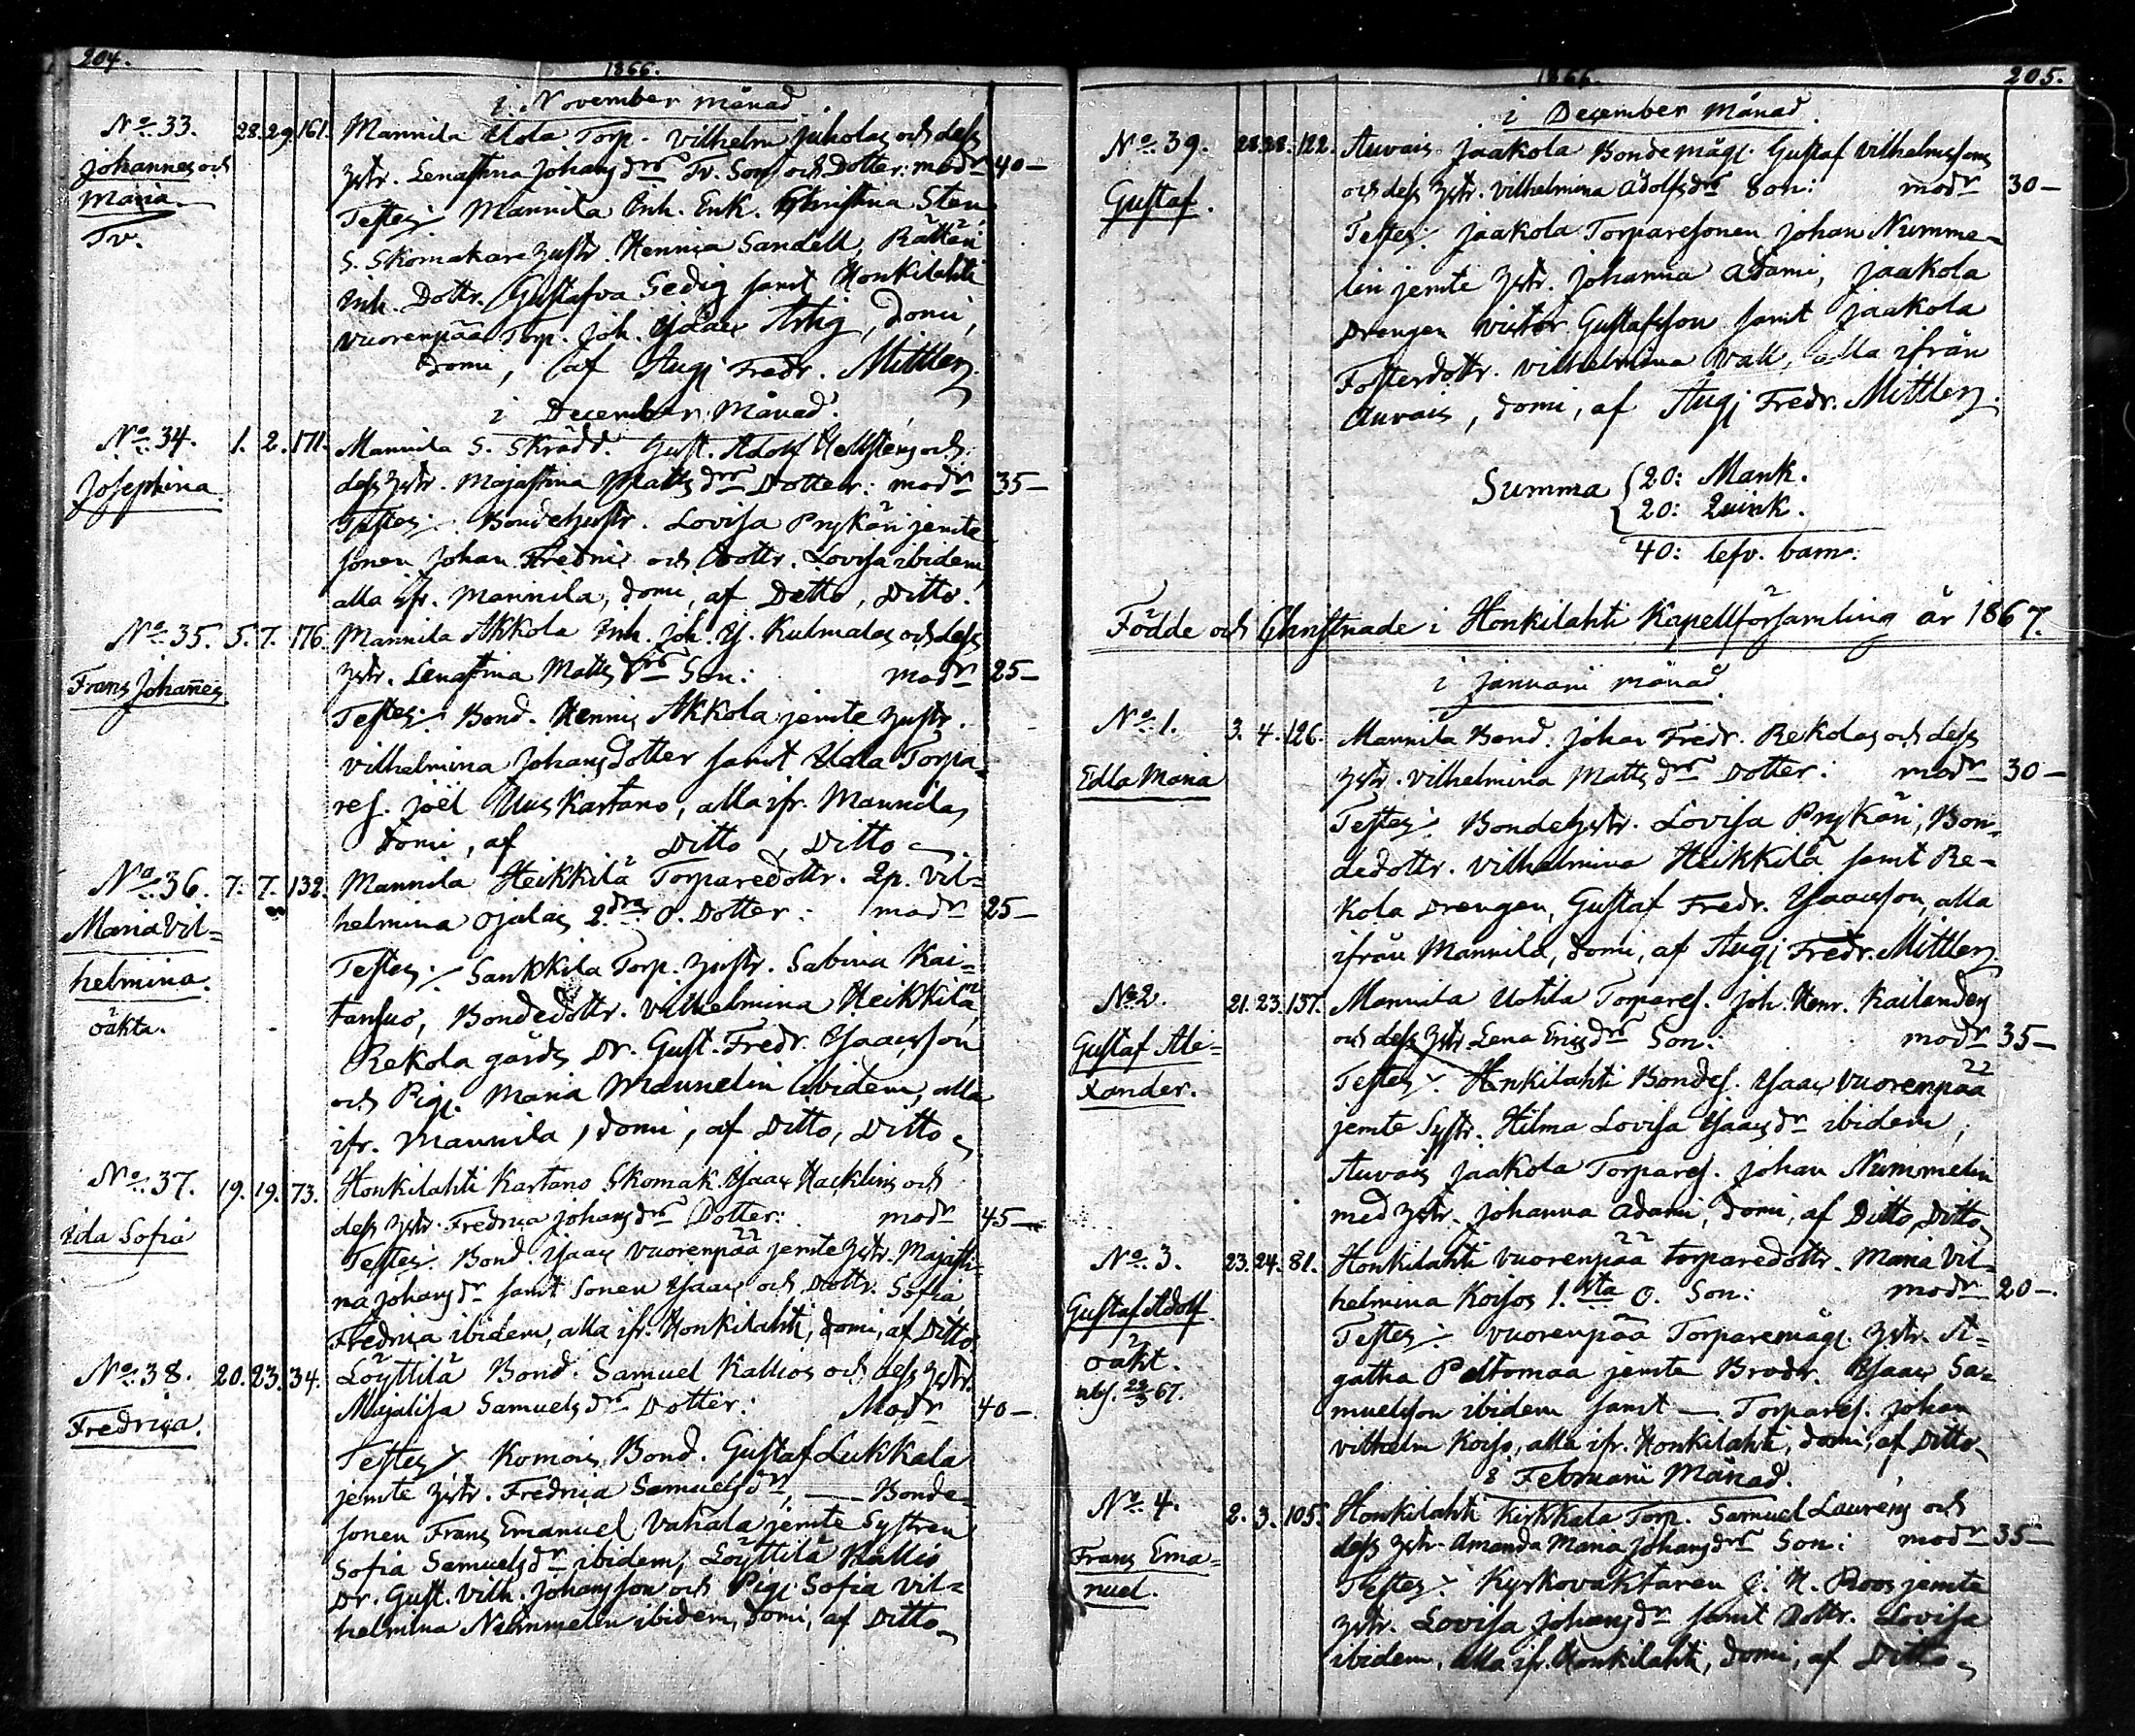 204.
1866.
i November månad.
No 33. 28. 29. 161. Mannila Uola Torp. Vilhelm Juholas och dess
Johannes och Hstr. Lenastina Johansdrs Tv. Son och Dotter: modr 40—
Maria. Testes: Mannila Inh. Enk. Christina Sten,
Tv. S. Skomakare hustr. Henrica Sandell, Rättäri
Inh. Dottr. Gustafva Sedig samt Honkilahti
Vuorenpää Torp. Joh. Isaac Artig, domi,
domi, af Augj Fredr. Mittler.
i December Månad.
No 34. 1. 2. 171. Mannila S. Skrädd. Gust. Adolf Hellstens och
Josephina. dess Hstr. Majastina Mattsdrs Dotter: modr 35—
Testes: Bondehustr. Lovisa Prykäri jemte
sonen Johan Fredric och Dottr. Lovisa ibidem,
alla ifr. Mannila, domi, af Ditto, Ditto.
No 35. 5. 7. 176. Mannila Akkola Inh. Joh. Is. Kulmalas och dess
Frans Johannes Hstr. Lenastina Mattsdrs Son: modr 25—
Testes: Bond. Henric Akkola jemte hustr.
Vilhelmina Johansdotter samt Uola Torpa=
res. Joël Uus Kartano, alla ifr. Mannila,
domi, af Ditto, Ditto
No 36. 7. 7. 132. Mannila Heikkilä Torparedottr. Qp. Vil=
Maria Vil= helmina Ojalas 2dra O. Dotter: modr 25—
helmina. Testes: Sankkila Torp. hustr. Sabina Kai=
oäkta. tansuo, Bondedottr. Vilhelmina Heikkilä,
Rekola gårds Dr. Gust. Fredr. Isaacsson
och Pig. Maria Mannelin ibidem, alla
ifr. Mannila, domi, af Ditto, Ditto
No 37. 19. 19. 73. Honkilahti Kartano Skomak. Isaac Hacklins och
Ida Sofia dess Hstr. Fredrica Johansdrs Dotter: modr 45—
Testes: Bond. Isaac Vuorenpää jemte Hstr. Majasti=
na Johansdr samt Sonen Isaac och Dottr. Sofia
Fredrica ibidem, alla ifr. Honkilahti, domi, af Ditto
No 38. 20. 23. 34. Löyttilä Bond. Samuel Kallios och dess Hstr.
Fredrica. Majalisa Samuelsdrs Dotter: Modr 40—
Testes: Komois Bond. Gustaf Lukkala
jemte Hstr. Fredrica Samuelsdr, — Bonde=
sonen Frans Emanuel Vähätalo jemte Systren
Sofia Samuelsdr ibidem, Löyttilä Kallio
Dr. Gust. Vilh. Johansson och Pig. Sofia Vil=
helmina Nummelin ibidem, domi, af Ditto
1866.
205.
i December Månad.
No 39. 28. 28. 122. Auvais Jaakola Bondemåg. Gustaf Vilhelmssons
Gustaf. och dess Hstr. Vilhelmina Adolfsdrs Son: modr 30—
Testes: Jaakola Torparesonen Johan Numme=
lin jemte Hstr. Johanna Adami, Jaakola
Drengen Victor Gustafsson samt Jaakola
Fosterdottr. Vilhelmina Vall, alla ifrån
Auvais, domi, af Augj Fredr. Mittler.
Summa { 20: Mank.
20: Quink.
40: lefv. barn.
Födde och Christnade i Honkilahti Kapellförsamling år 1867.
i Januarii månad.
No 1. 3. 4. 126. Mannila Bond. Johan Fredr. Rekolas och dess
Edla Maria Hstr. Vilhelmina Mattsdrs Dotter: modr 30—
Testes: Bondehstr. Lovisa Prykäri, Bon=
dedottr. Vilhelmina Heikkilä samt Re=
kola Drengen, Gustaf Fredr. Isaacsson, alla
ifrån Mannila, domi, af Augj Fredr. Mittler
No 2. 21. 23. 137. Mannila Uotila Torpares. Joh. Henr. Kailanders
Gustaf Ale= och dess Hstr. Lena Ericsdrs Son: modr 35—
xander. Testes: Honkilahti Bondes. Isaac Vuorenpää
jemte Systr. Hilma Lovisa Isaacsdr ibidem,
Auvais Jaakola Torpares. Johan Nummelin
med Hstr. Johanna Adami, domi, af Ditto, Ditto
No 3. 23. 24. 81. Honkilahti Vuorenpää torparedottr. Maria Vil=
Gustaf Adolf. helmina Koisos 1.sta O. Son: modr 20—.
oäkt. Testes: Vuorenpää Torparemåg. Hstr. A=
gatha Peltomaa jemte Brodr. Isaac Sa=
muelsson ibidem samt — Torpares. Johan
Vilhelm Koiso, alla ifr. Honkilahti, domi, af Ditto
i Februarii Månad.
No 4. 2. 3. 105. Honkilahti Kirkkala Torp. Samuel Laurens och
Frans Ema= dess Hstr. Amanda Maria Johansdrs Son: modr 35—
nuel. Testes: Kyrkovaktaren J. H. Roos jemte
Hstr. Lovisa Johansdr samt Dottr. Lovisa
ibidem, alla ifr. Honkilahti, domi, af Ditto